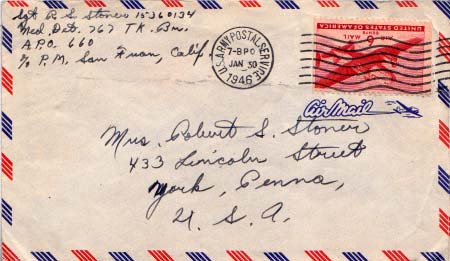 Sgt R S Stoner 15360134
Med. Det. 767 TK. Bn.
A.P.O. 660
c/o P.M. San Fran, Calif.
U.S. ARMY POSTAL SERVICE
7-BPO
JAN 30
1946
UNITED STATES OF AMERICA
6
CENTS
AIR MAIL
Air Mail
Mrs. Robert S. Stoner
433 Lincoln Street
York, Penna,
U. S. A.